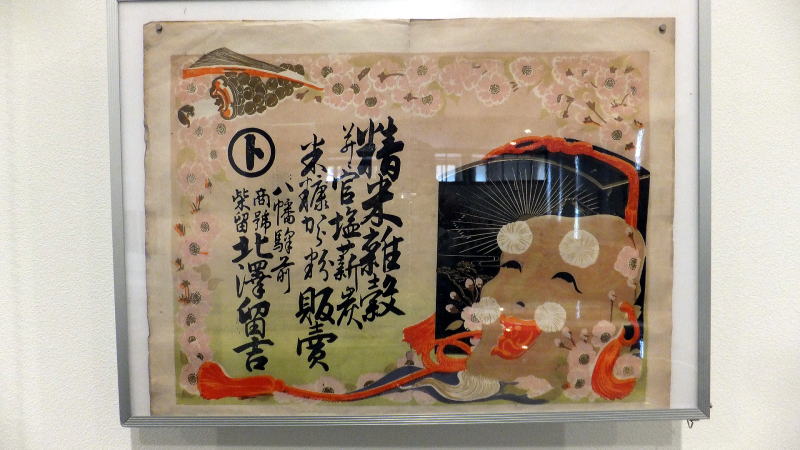 精米雑穀
并官塩薪炭
米糠から粉販賣
八幡驛前
商號
柴留
北澤留吉
ト